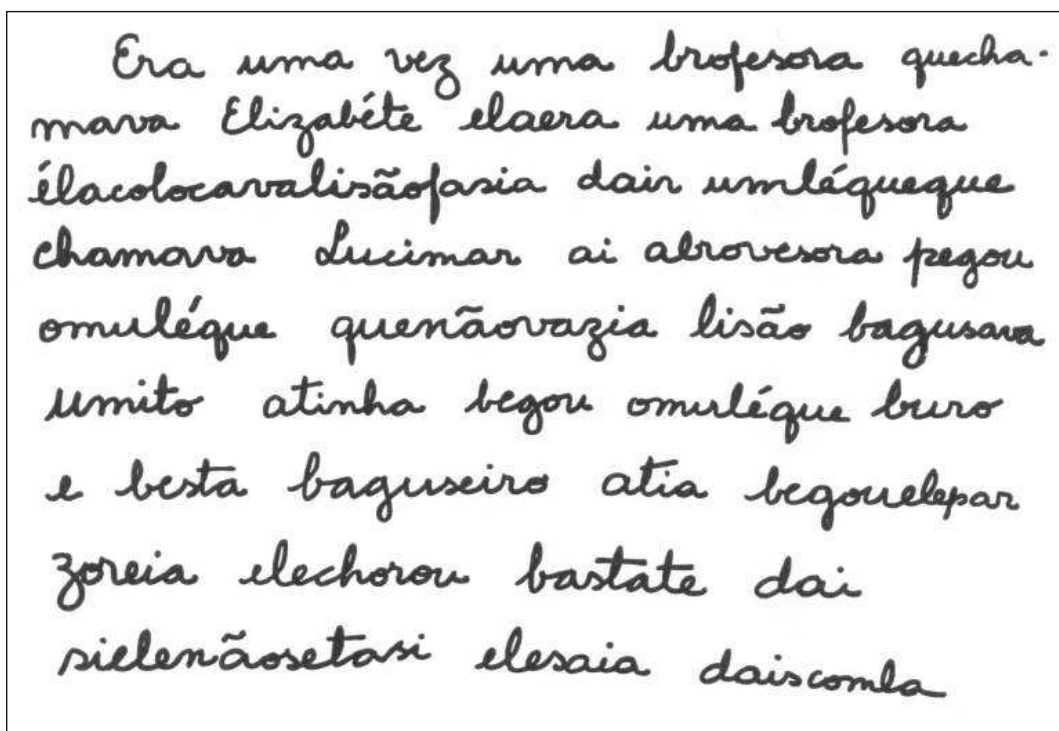 Era uma vez uma brofesora quecha-
mava Elizabéte elaera uma brofesora
élacolocavalisãofasia dair umléqueque
chamava Lucimar ai abrovesora pegou
omuléque quenãovazia lisão bagusava
umito atinha begou omuléque buro
e besta baguseiro atia begouelepar
zoreia elechorou bastate dai
sielenãosetasi elesaia daiscomla